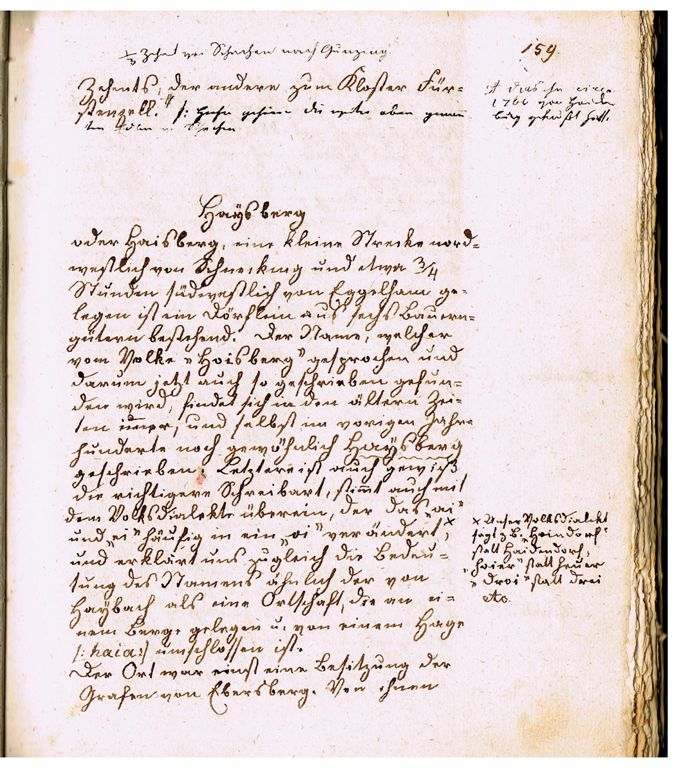 1/3 Zehnt von Schachen nach Gunzing
159.
Zehents, der andere zum Kloster Für-
stenzell."
Haÿsberg
oder Haisberg, eine kleine Strecke nord-
westlich von Schnecking und etwa 3/4
Stunden südwestlich von Eggelham ge-
legen ist ein Dörflein aus sechs Bauern-
gütern bestehend. Der Name, welcher
vom Volke "Hoisberg" gesprochen und
darum jetzt auch so geschrieben gefun-
den wird, findet sich in den ältern Zei-
ten immer, und selbst im vorigen Jahr-
hunderte noch gewöhnlich Haÿsberg
geschrieben. Letztere ist auch gewiß
die richtigere Schreibart, stimmt auch mit
dem Volksdialekte überein, der das "ai"
und "ei" häufig in ein "oi" verändert, x
und erklärt uns zugleich die Bedeu-
tung des Namens ähnlich der von
Haybach als eine Ortschaft, die an ei-
nem Berge gelegen u. von einem Hage
/: haia :/ umschlossen ist.
Der Ort war einst eine Besitzung der
Grafen von Ebersberg. Von ihnen
x Unser Volksdialekt
sagt z. B. "Hoindorf"
statt Haidendorf,
"hoier" statt heuer
"droi" statt drei
etc.